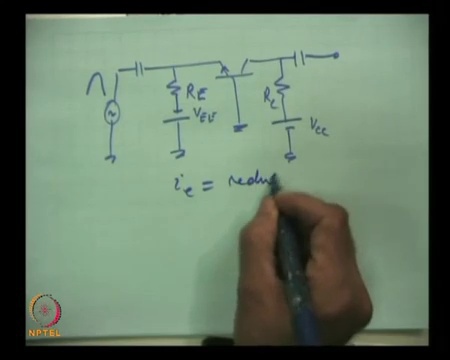 R_E
V_EE
R_c
V_cc
i_e = redu
NPTEL